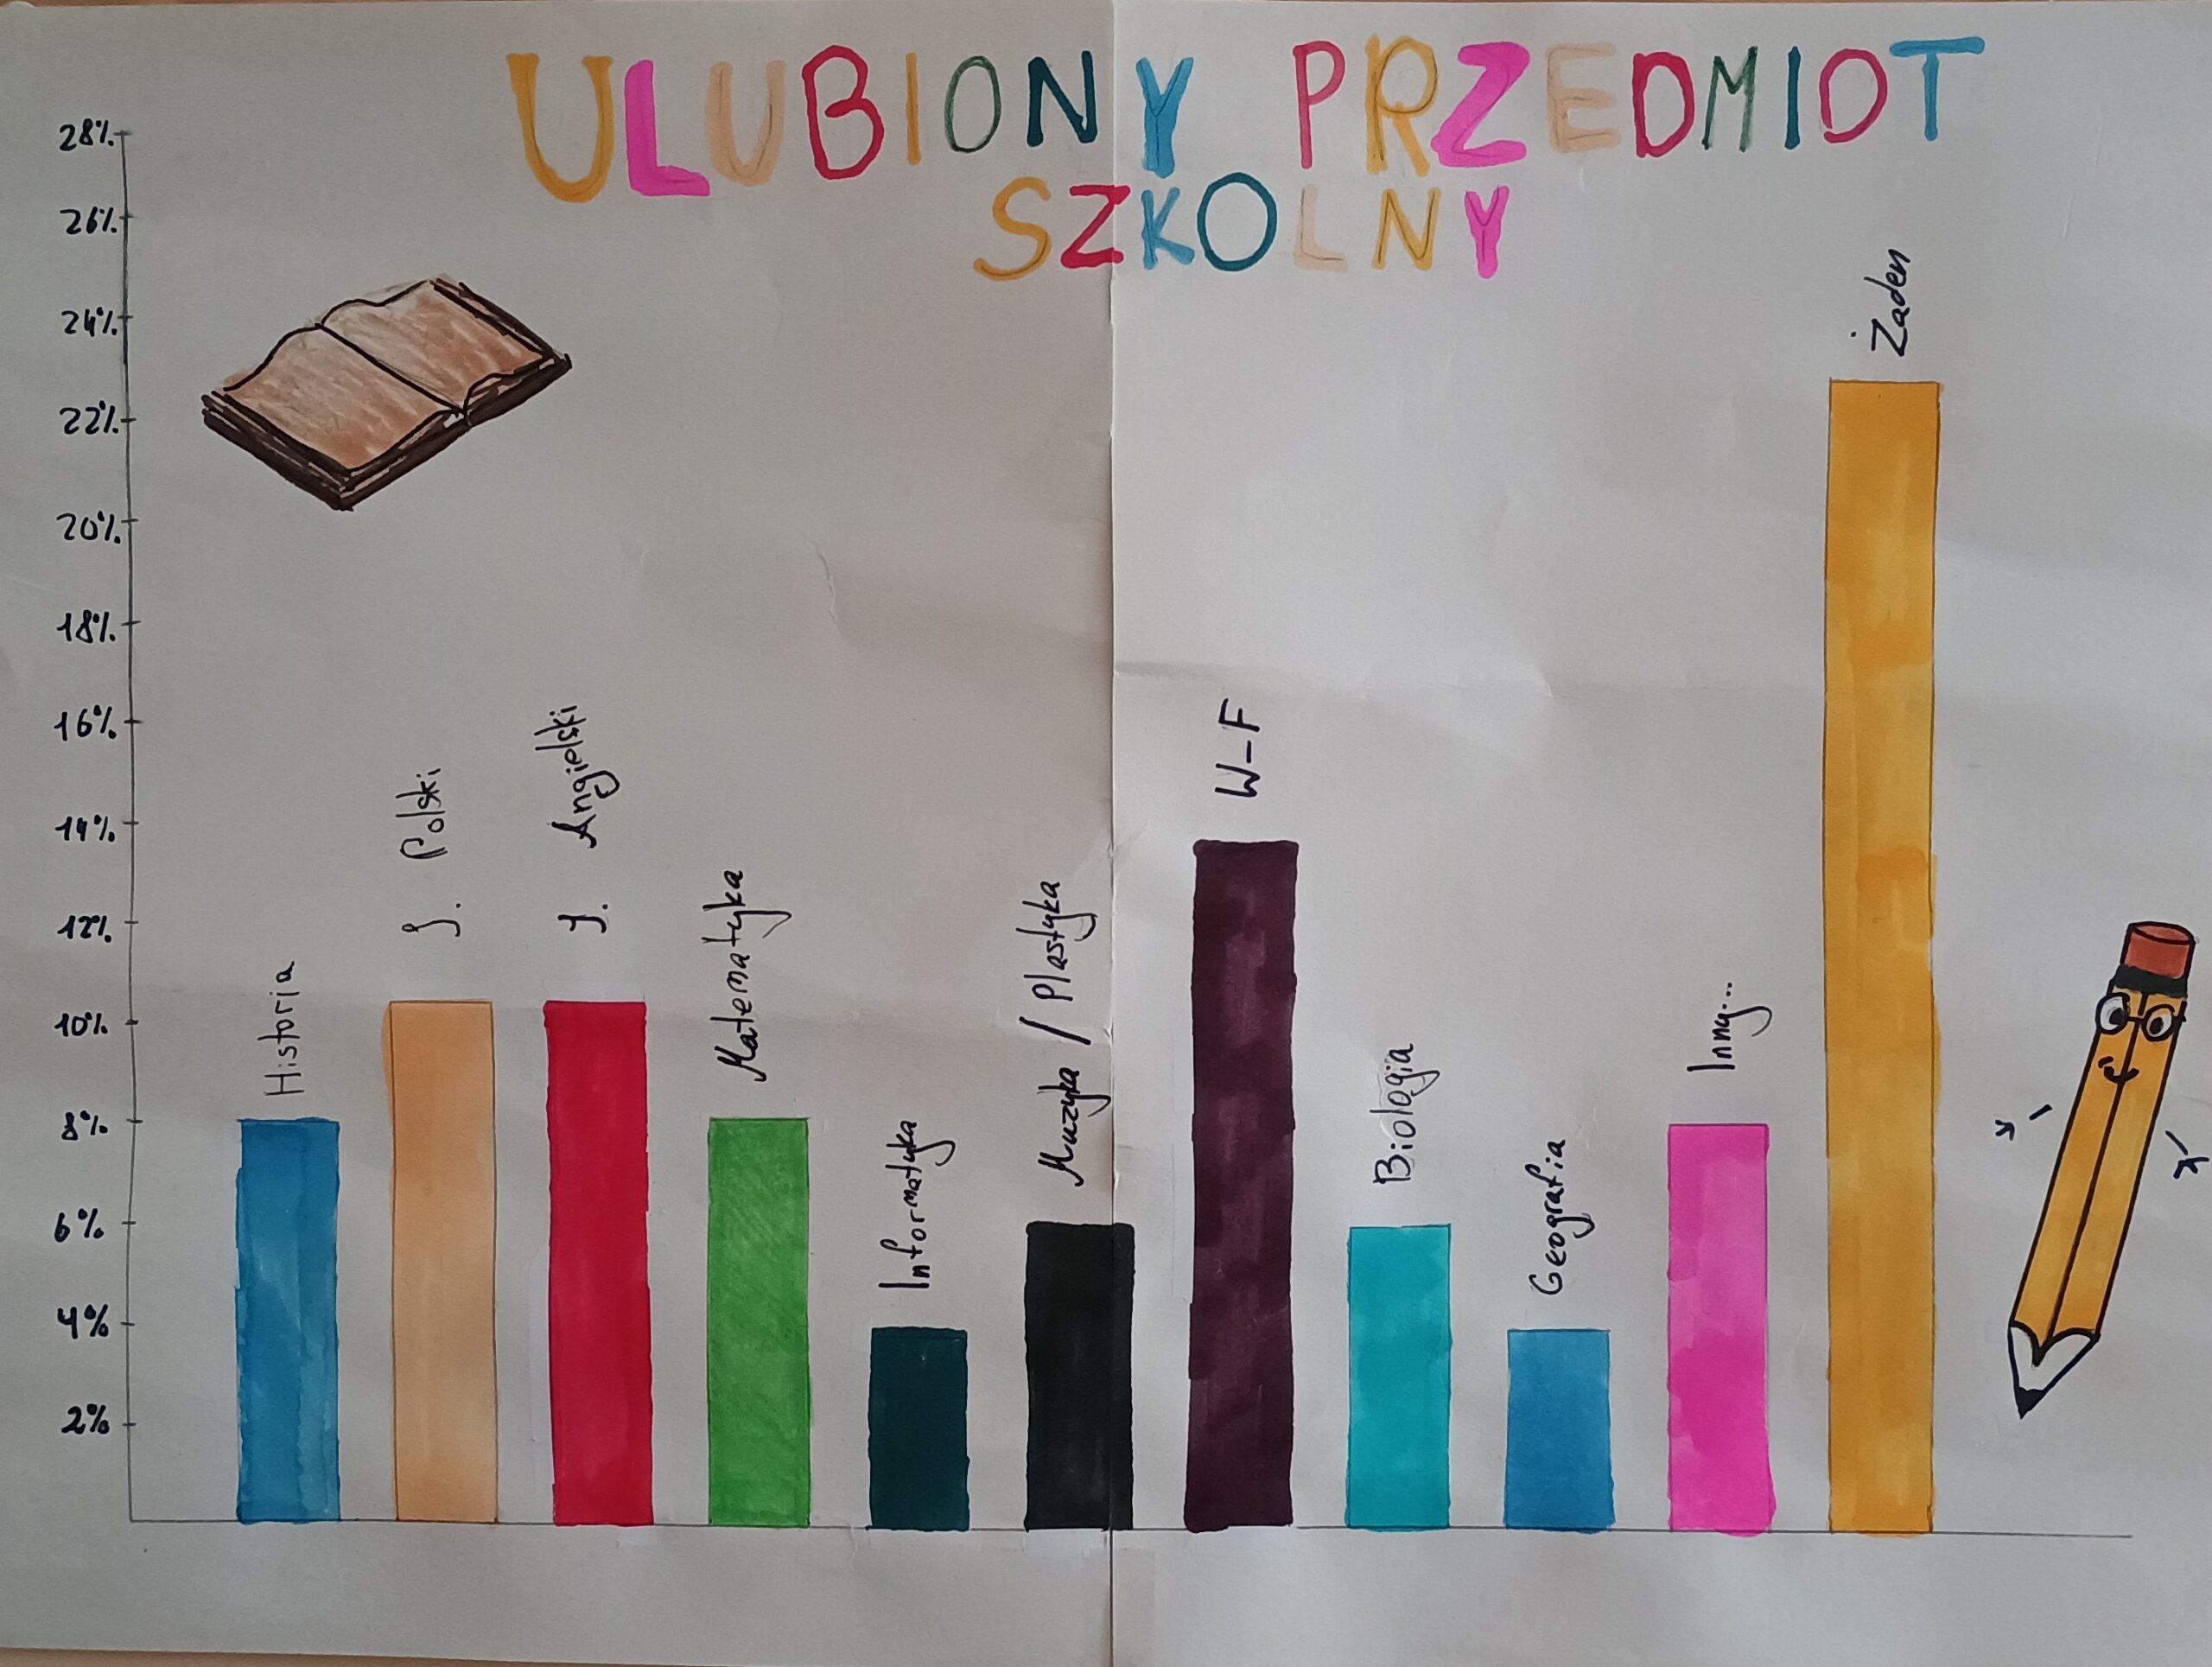 ULUBIONY PRZEDMIOT
SZKOLNY
28%
26%
24%
22%
20%
18%
16%
14%
12%
10%
8%
6%
4%
2%
Historia
J. Polski
J. Angielski
Matematyka
Informatyka
Muzyka / Plastyka
W-F
Biologia
Geografia
Inny...
Żaden